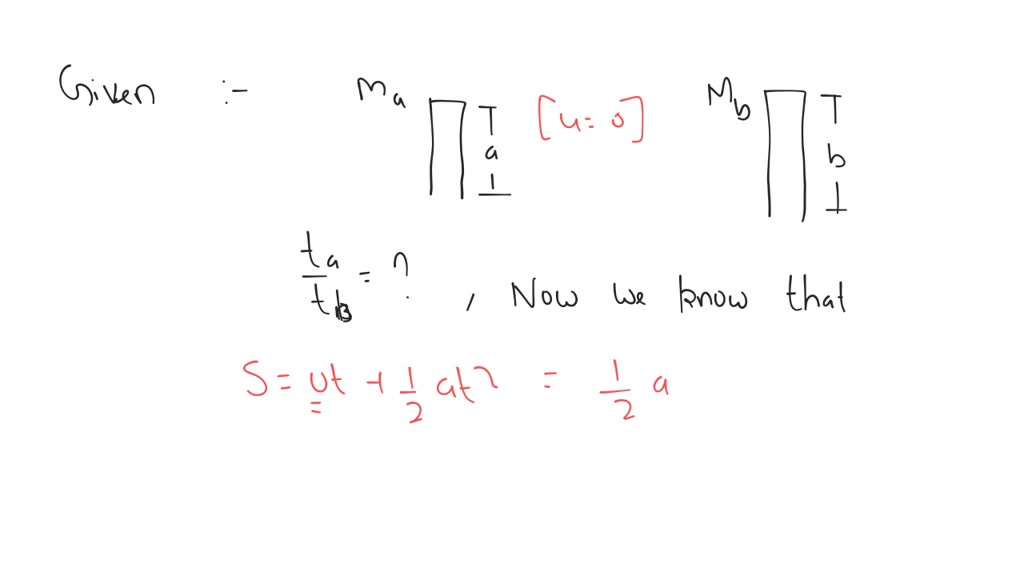 Given :- Ma T a ⊥ [u=0] Mb T b ⊥
ta/tb = ? , Now we know that
S = ut + 1/2 at2 = 1/2 a